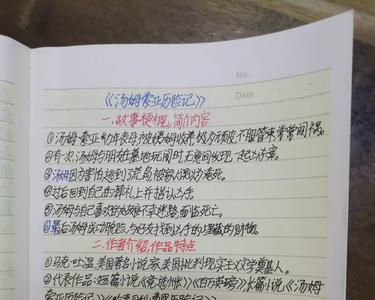 No.
Date
《汤姆索亚历险记》
一、故事梗概,简介内容
①汤姆·索亚幼年丧母,被姨妈收养,极为顽皮,不服管束,常常闯祸。
②有一次汤姆与朋友在墓地玩闹时,无意间发现一起凶杀案。
③汤姆因为害怕逃到了荒岛,被家人误以为淹死。
④过后回到自己的葬礼上并指认凶手。
⑤汤姆与自己喜欢的姑娘不幸迷路,面临死亡。
⑥最后汤姆成功脱险,与好友找到凶手的埋藏的财物。
二、作者介绍,作品特点
①马克·吐温,美国著名小说家,美国批判现实主义文学奠基人。
②代表作品:短篇小说《竞选州长》《百万英镑》,长篇小说《汤姆